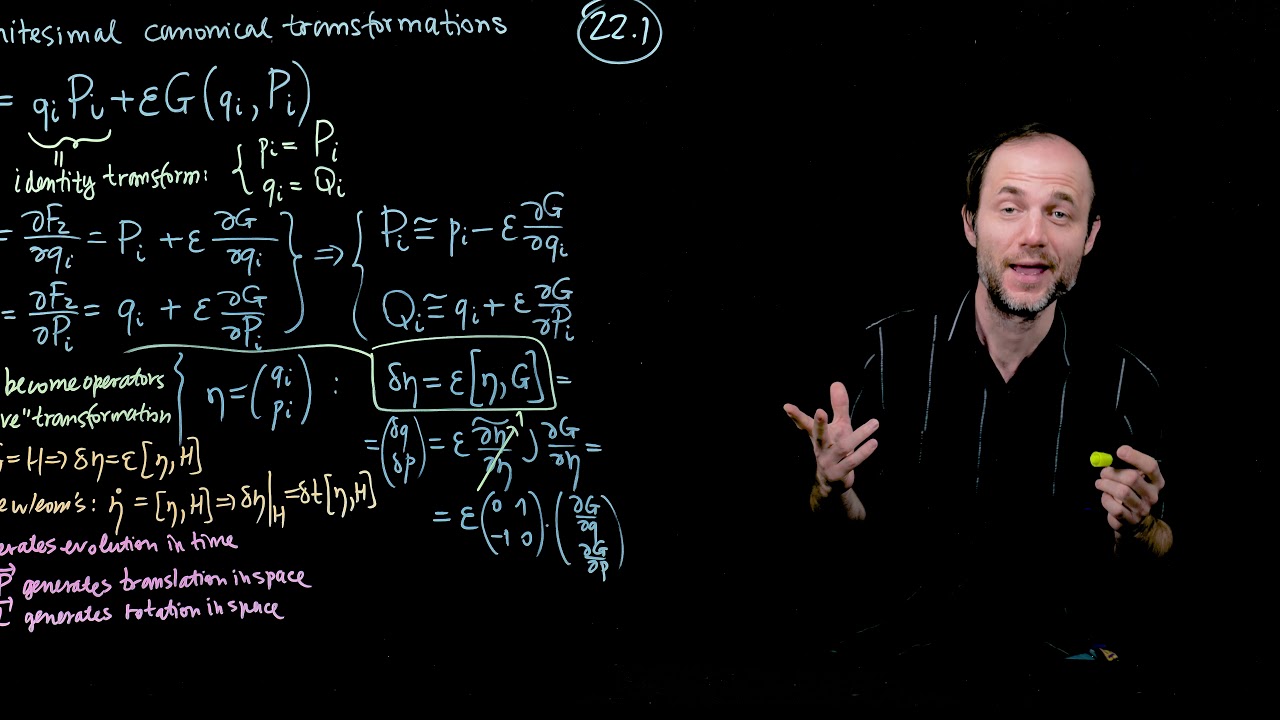 nitesimal canonical transformations 22.1
= qᵢPᵢ + εG(qᵢ, Pᵢ)
identity transform: { pᵢ = Pᵢ
qᵢ = Qᵢ
= ∂F₂/∂qᵢ = Pᵢ + ε ∂G/∂qᵢ } ⇒ { Pᵢ ≅ pᵢ − ε ∂G/∂qᵢ
= ∂F₂/∂Pᵢ = qᵢ + ε ∂G/∂Pᵢ Qᵢ ≅ qᵢ + ε ∂G/∂Pᵢ
become operators { η = (qᵢ pᵢ) : δη = ε[η, G] =
ve" transformation
= (δq δp) = ε ∂η/∂η J ∂G/∂η =
G = H ⇒ δη = ε[η, H]
ew/eom's: η̇ = [η, H] ⇒ δη|_H = δt[η, H]
= ε (0 1 −1 0) · (∂G/∂q ∂G/∂p)
erates evolution in time
P⃗ generates translation in space
L⃗ generates rotation in space